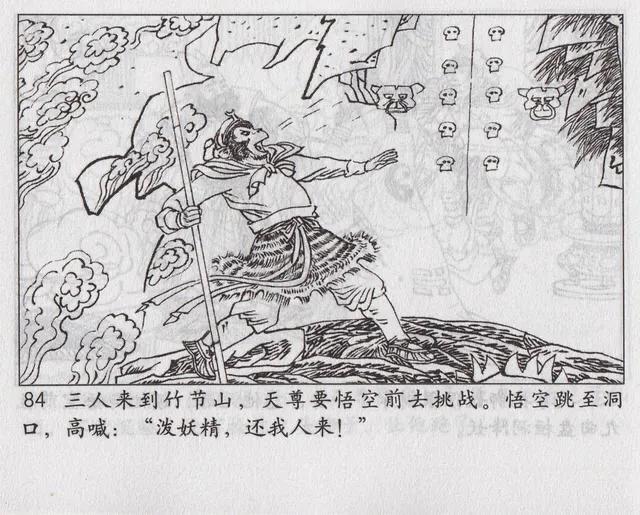 84 三人来到竹节山，天尊要悟空前去挑战。悟空跳至洞
口，高喊：“泼妖精，还我人来！”